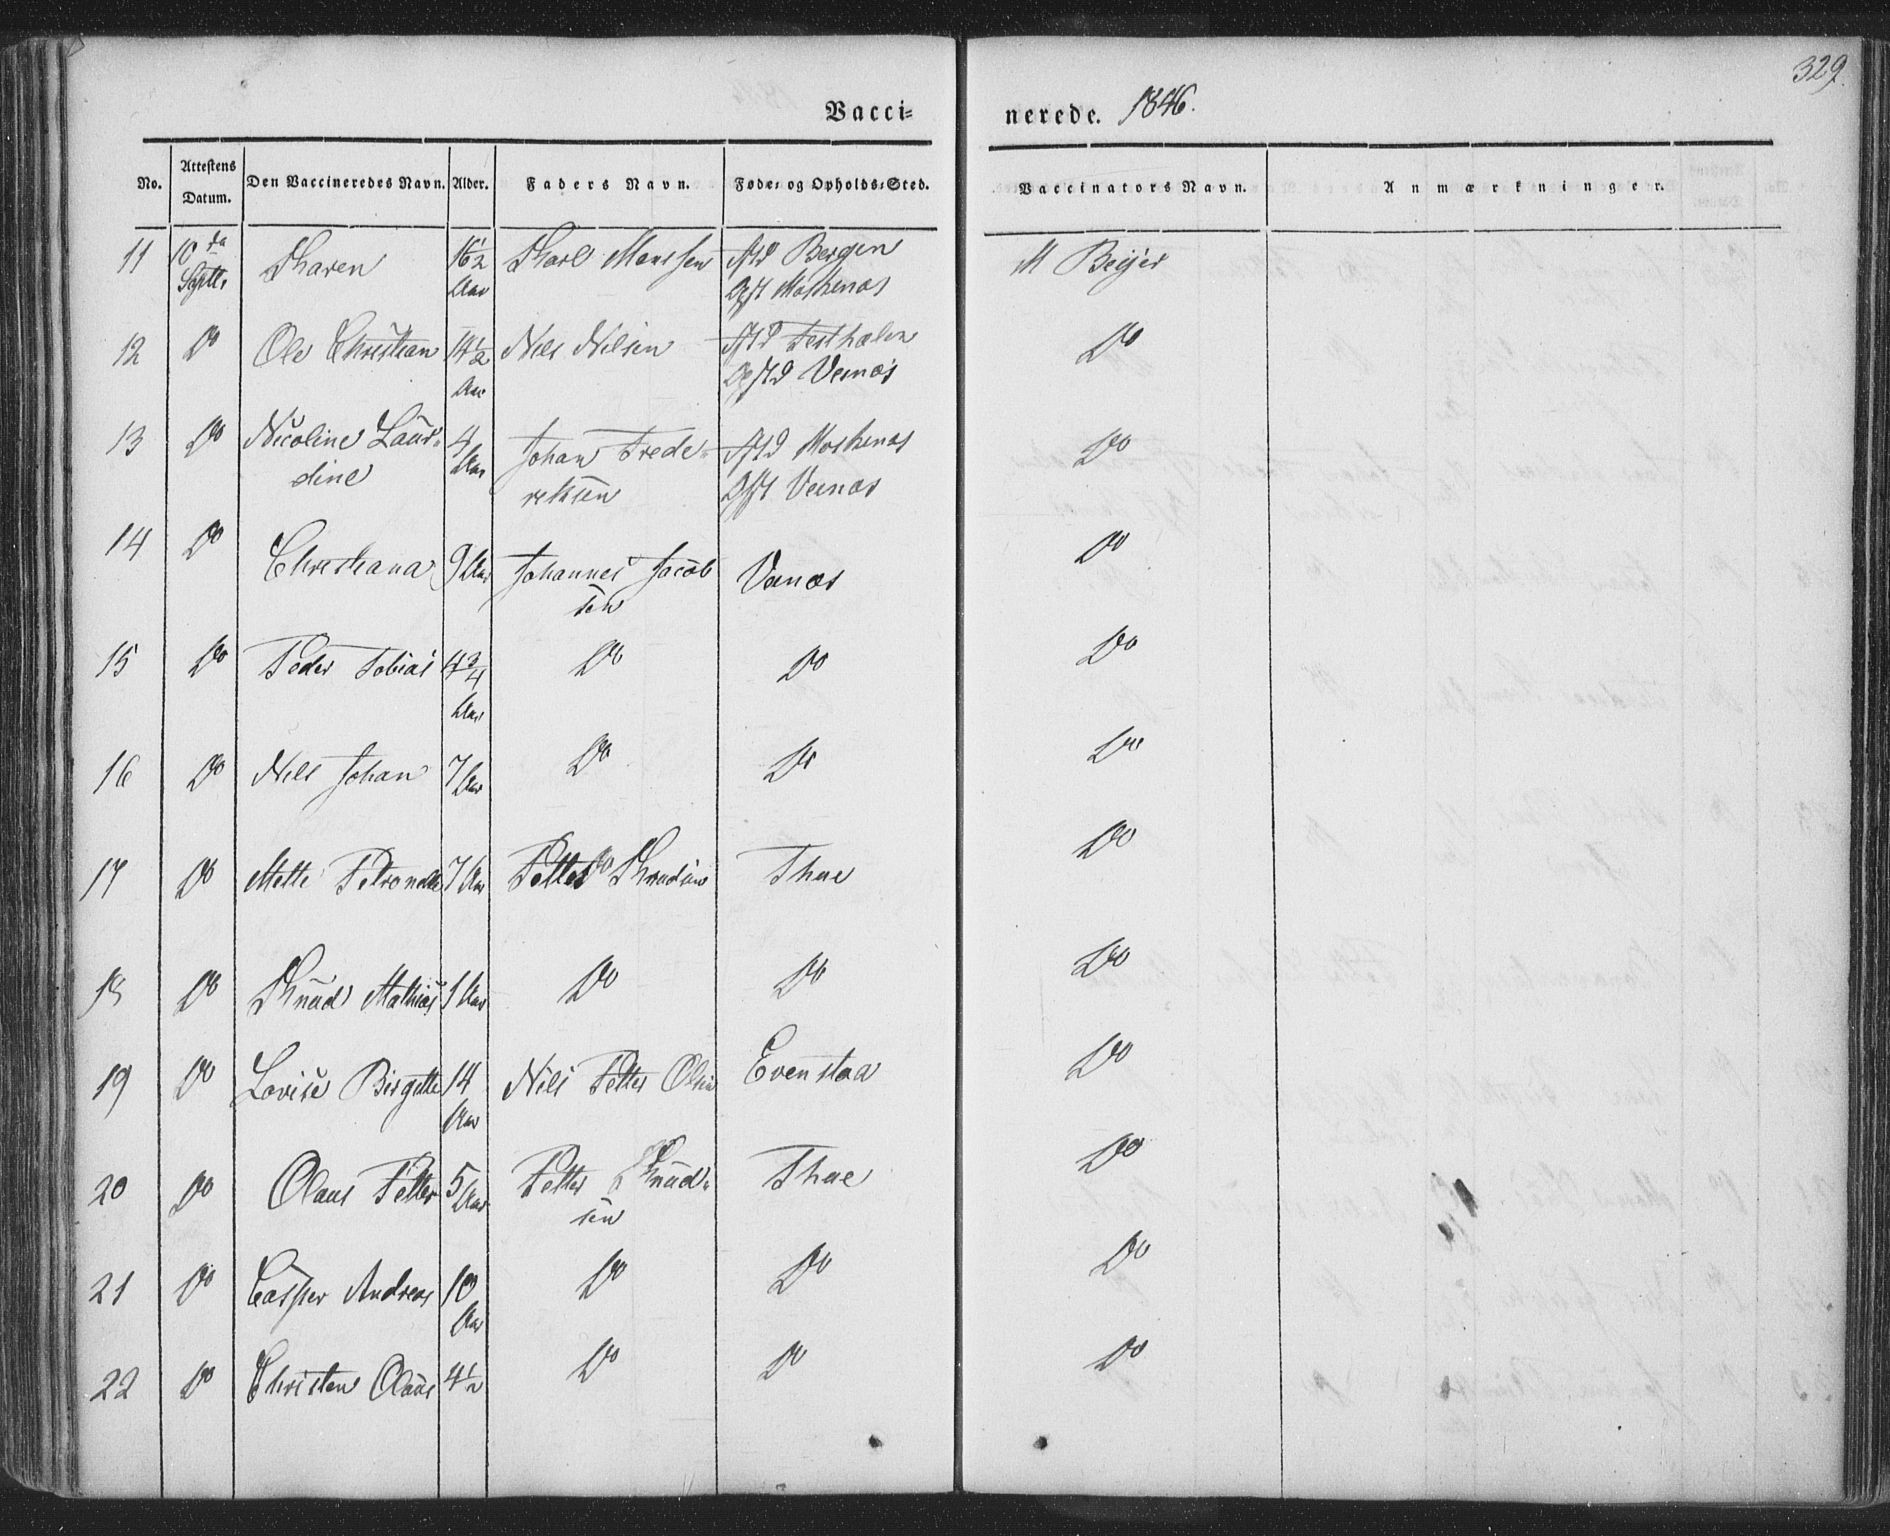 329.
Vacci= nerede. 1846.
No. Attestens Datum. Den Vaccineredes Navn. Alder. Faders Navn. Føde- og Opholds-Sted. Vaccinators Navn. Anmærkninger.
11 10da Septbr. Karen 16½ Aar Karl Monssen Fsted Bergen M Beyer
Opst Moskenæs
12 Do Ole Christian 14½ Aar Nils Nilsen Fstd Do
Opstd Værnæs
13 Do Nicoline Laur= 4 Aar Johan Frede= Fstd Moskenæs Do
dine reksen Opst Værnæs
14 Do Christiana 9 Aar Johannes Jacob Do
sen Værnæs
15 Do Peder Tobias 4¾ Aar Do Do Do
16 Do Nils Johan 7 Aar Do Do Do
17 Do Mette Petronelle 7 Aar Petter Knudsen Thue Do
18 Do Knud Mathias 1 Aar Do Do Do
19 Do Lovise Birgitte 14 Aar Nils Petter Olsen Evenstad Do
20 Do Olaus Petter 5 Aar Petter Knud= Thue Do
sen
21 Do Casper Andreas 10 Aar Do Do Do
22 Do Christen Olaus 4½ Do Do Do